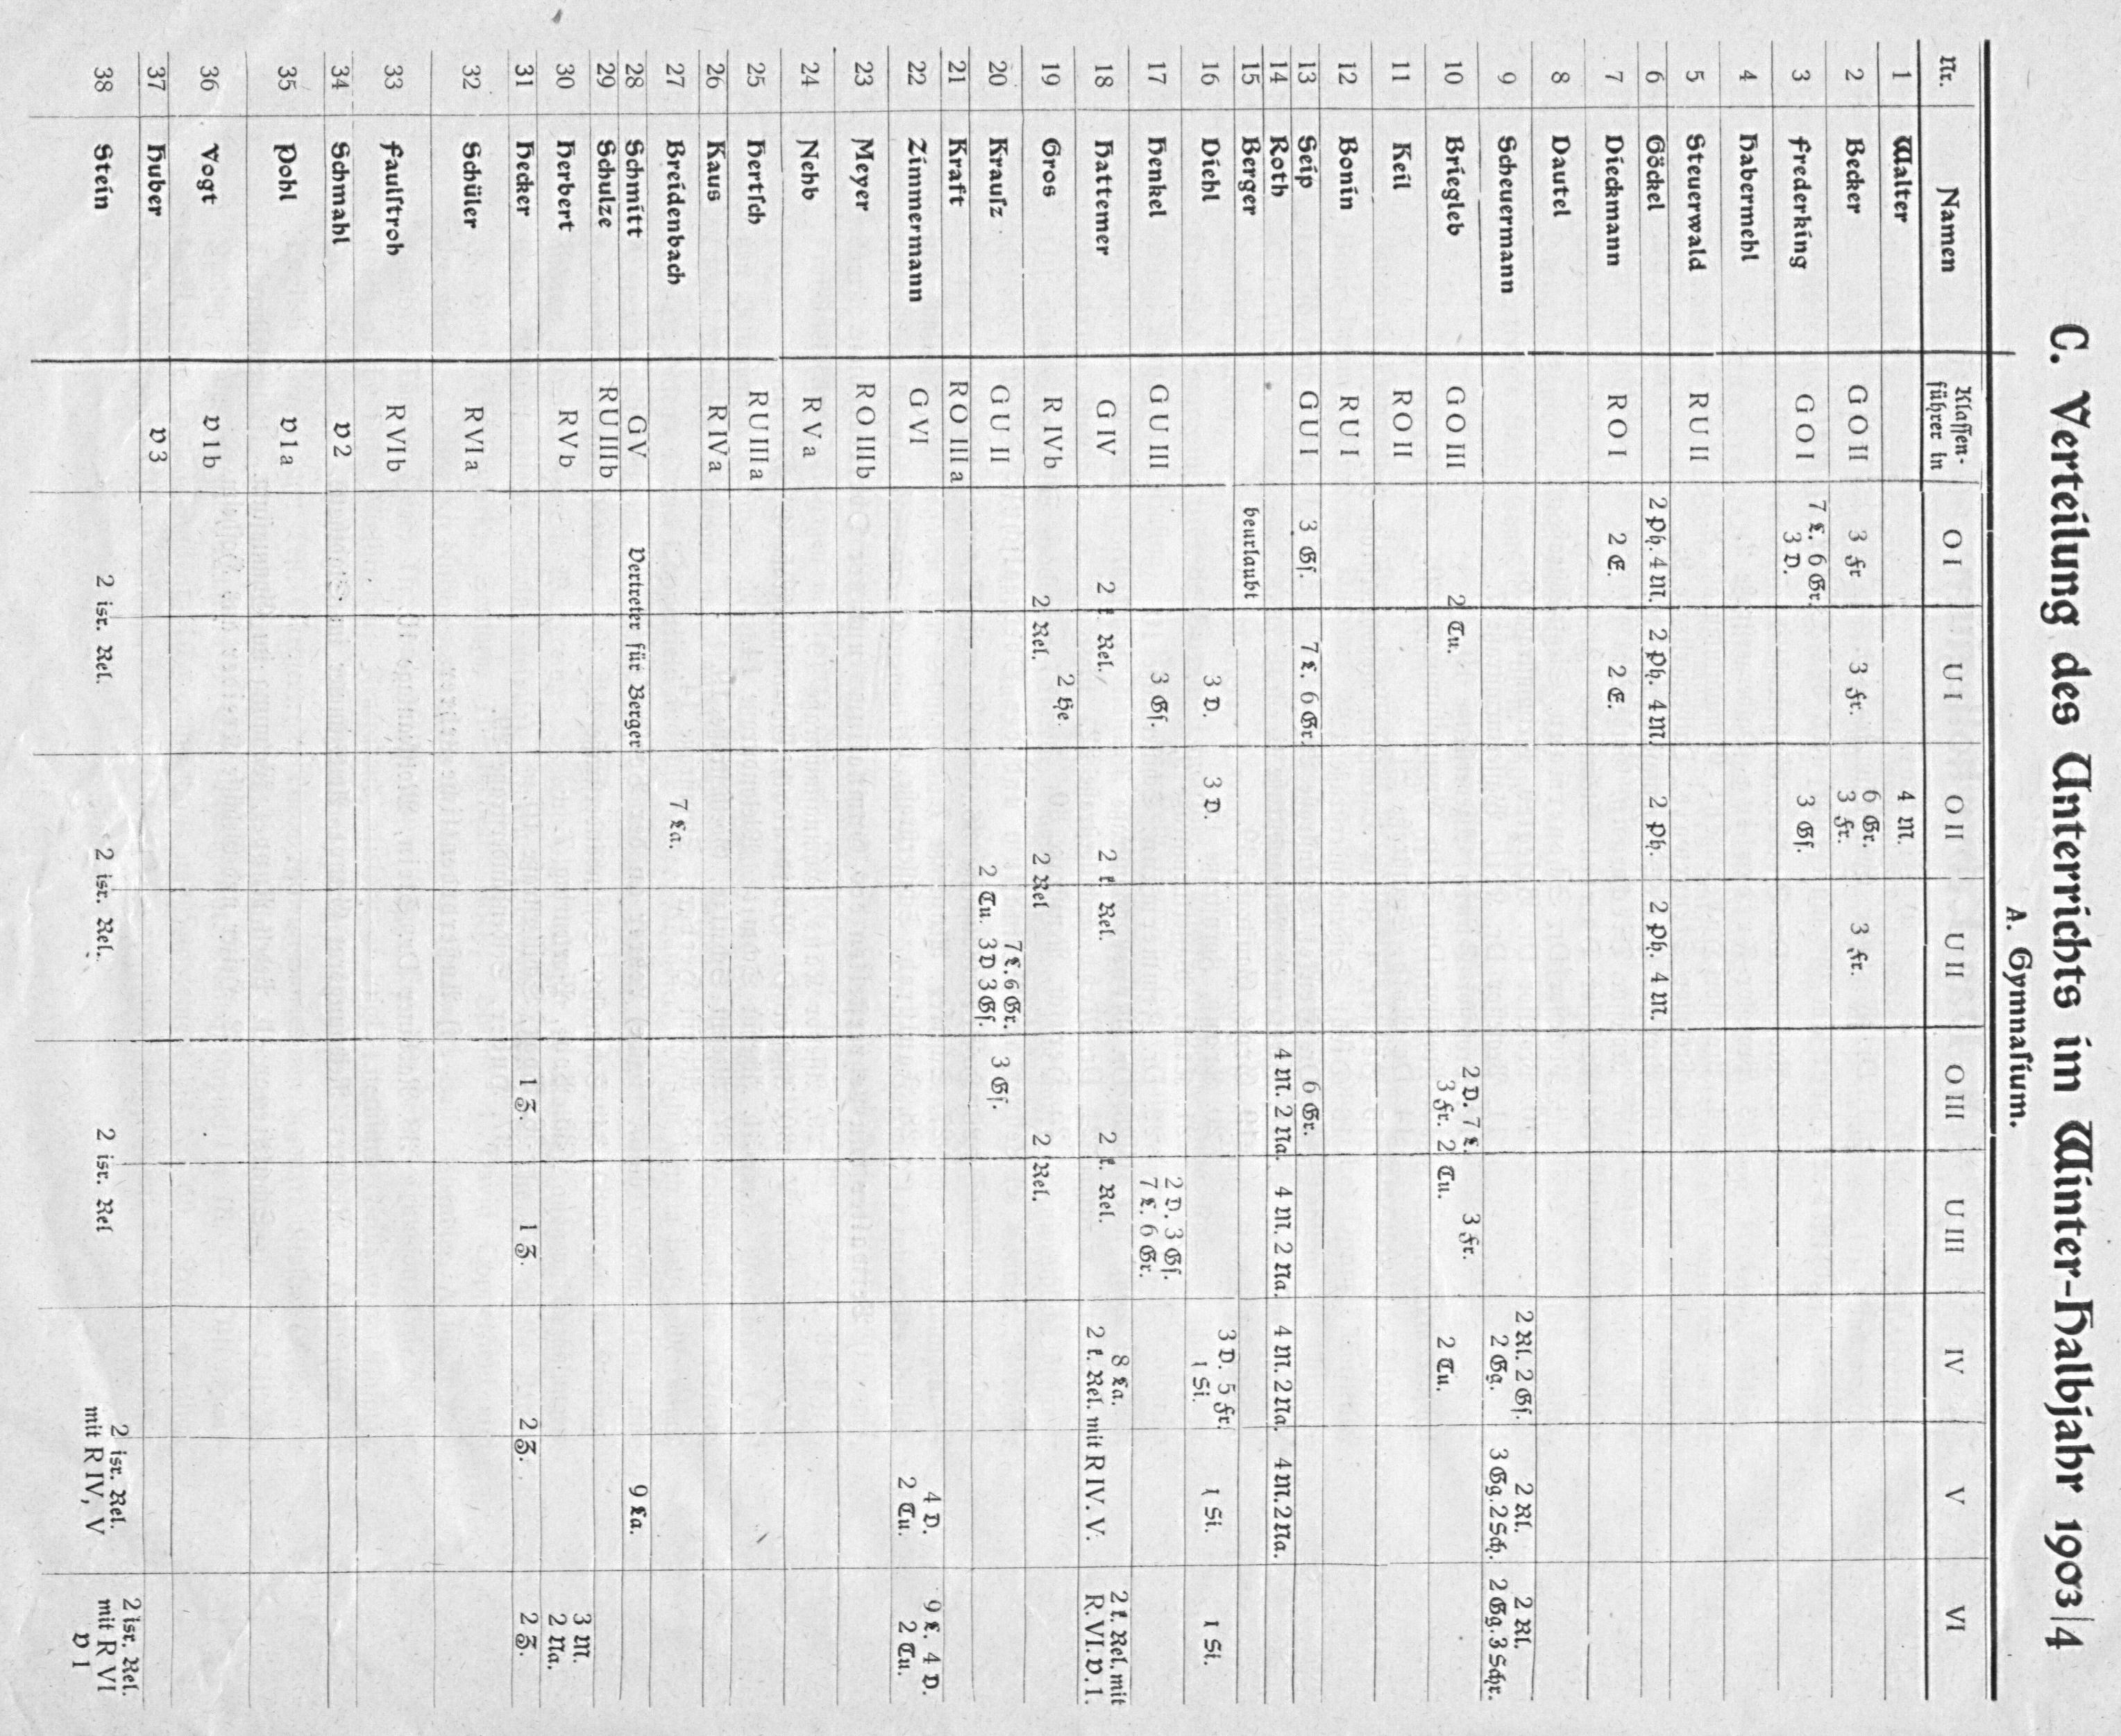 C. Verteilung des Unterrichts im Winter-Halbjahr 1903/4
A. Gymnaſium.
Nr. Namen Klaſſen-führer in O I U I O II U II O III U III IV V VI
1 Walter 4 M.
2 Becker G O II 3 Fr 3 Fr. 6 Gr. 3 Fr. 3 Fr.
3 Frederking G O I 7 L. 6 Gr. 3 D. 3 Gſ.
4 Habermehl
5 Steuerwald R U II
6 Göckel 2 Ph. 4 M. 2 Ph. 4 M. 2 Ph. 2 Ph. 4 M.
7 Dieckmann R O I 2 E. 2 E.
8 Dautel
9 Scheuermann 2 Rl. 2 Gſ. 2 Gg. 2 Rl. 3 Gg. 2 Sch. 2 Rl. 2 Gg. 3 Schr.
10 Briegleb G O III 2 Tu. 2 D. 7 L. 3 Fr. 2 Tu. 3 Fr. 2 Tu.
11 Keil R O II
12 Bonin R U I
13 Seip G U I 3 Gſ. 7 L. 6 Gr. 6 Gr.
14 Roth 4 M. 2 Na. 4 M. 2 Na. 4 M. 2 Na. 4 M. 2 Na.
15 Berger beurlaubt
16 Diehl 3 D. 3 D. 3 D. 5 Fr. 1 Si. 1 Si. 1 Si.
17 Henkel G U III 3 Gſ. 2 D. 3 Gſ. 7 L. 6 Gr.
18 Hattemer G IV 2 k. Rel. 2 k. Rel. 2 k. Rel. 8 La. 2 k. Rel. mit R IV. V. 2 k. Rel. mit R. VI. V. 1.
19 Gros R IVb 2 Rel. 2 He. 2 Rel 2 Rel.
20 Krauſz G U II 7 L. 6 Gr. 2 Tu. 3 D 3 Gſ. 3 Gſ.
21 Kraft R O IIIa
22 Zimmermann G VI 4 D. 2 Tu. 9 L. 4 D. 2 Tu.
23 Meyer R O IIIb
24 Nebb R V a
25 Hertſch R U IIIa
26 Kaus R IVa
27 Breidenbach 7 La.
28 Schmitt G V Vertreter für Berger 9 La.
29 Schulze R U IIIb
30 Herbert R V b 3 M. 2 Na.
31 Hecker 1 Z. 1 Z. 2 Z. 2 Z.
32 Schüler R VI a
33 Fauſtroh R VI b
34 Schmahl V 2
35 Pohl V 1 a
36 Vogt V 1 b
37 Huber V 3
38 Stein 2 isr. Rel. 2 isr. Rel. 2 isr. Rel 2 isr. Rel. mit R IV, V 2 isr. Rel. mit R VI V 1